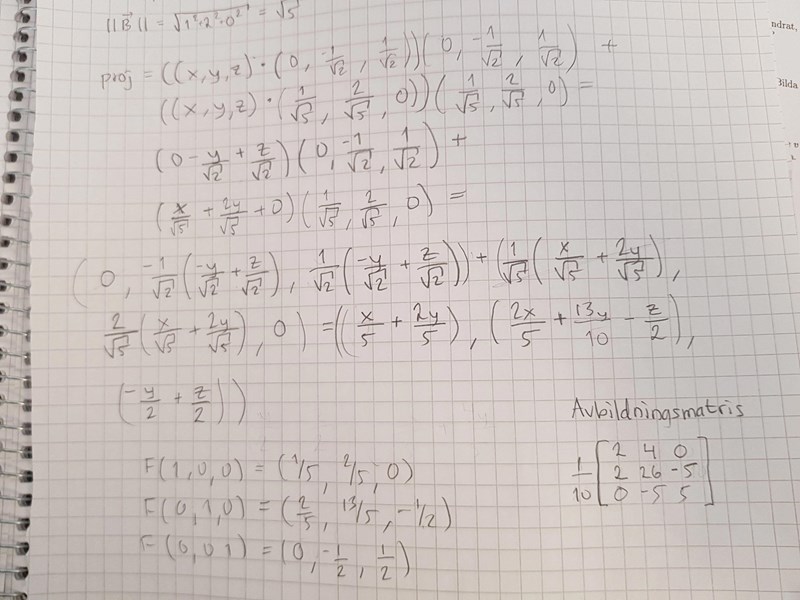 ||B⃗|| = √(1²+2²+0²) = √5
proj = ((x,y,z)·(0, -1/√2, 1/√2))(0, -1/√2, 1/√2) +
((x,y,z)·(1/√5, 2/√5, 0))(1/√5, 2/√5, 0) =
(0 - y/√2 + z/√2)(0, -1/√2, 1/√2) +
(x/√5 + 2y/√5 + 0)(1/√5, 2/√5, 0) =
(0, -1/√2(-y/√2 + z/√2), 1/√2(-y/√2 + z/√2)) + (1/√5(x/√5 + 2y/√5),
2/√5(x/√5 + 2y/√5), 0) = ((x/5 + 2y/5), (2x/5 + 13y/10 - z/2),
(-y/2 + z/2))
Avbildningsmatris
F(1,0,0) = (1/5, 2/5, 0)
F(0,1,0) = (2/5, 13/5, -1/2)
F(0,0,1) = (0, -1/2, 1/2)
1/10 [2 4 0
2 26 -5
0 -5 5]
ndrat,
Bilda